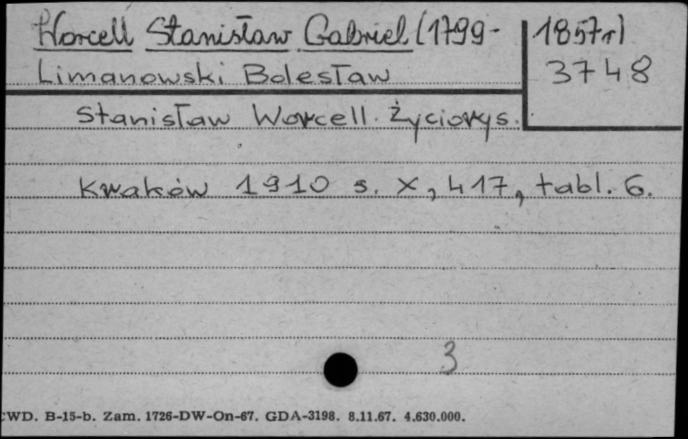 Worcell Stanisław Gabriel (1799-1857r)
Limanowski Bolesław 3748
Stanisław Worcell. Życiorys.
Kraków 1910 s. X, 417, tabl. 6.
3
CWD. B-15-b. Zam. 1726-DW-On-67. GDA-3198. 8.11.67. 4.630.000.